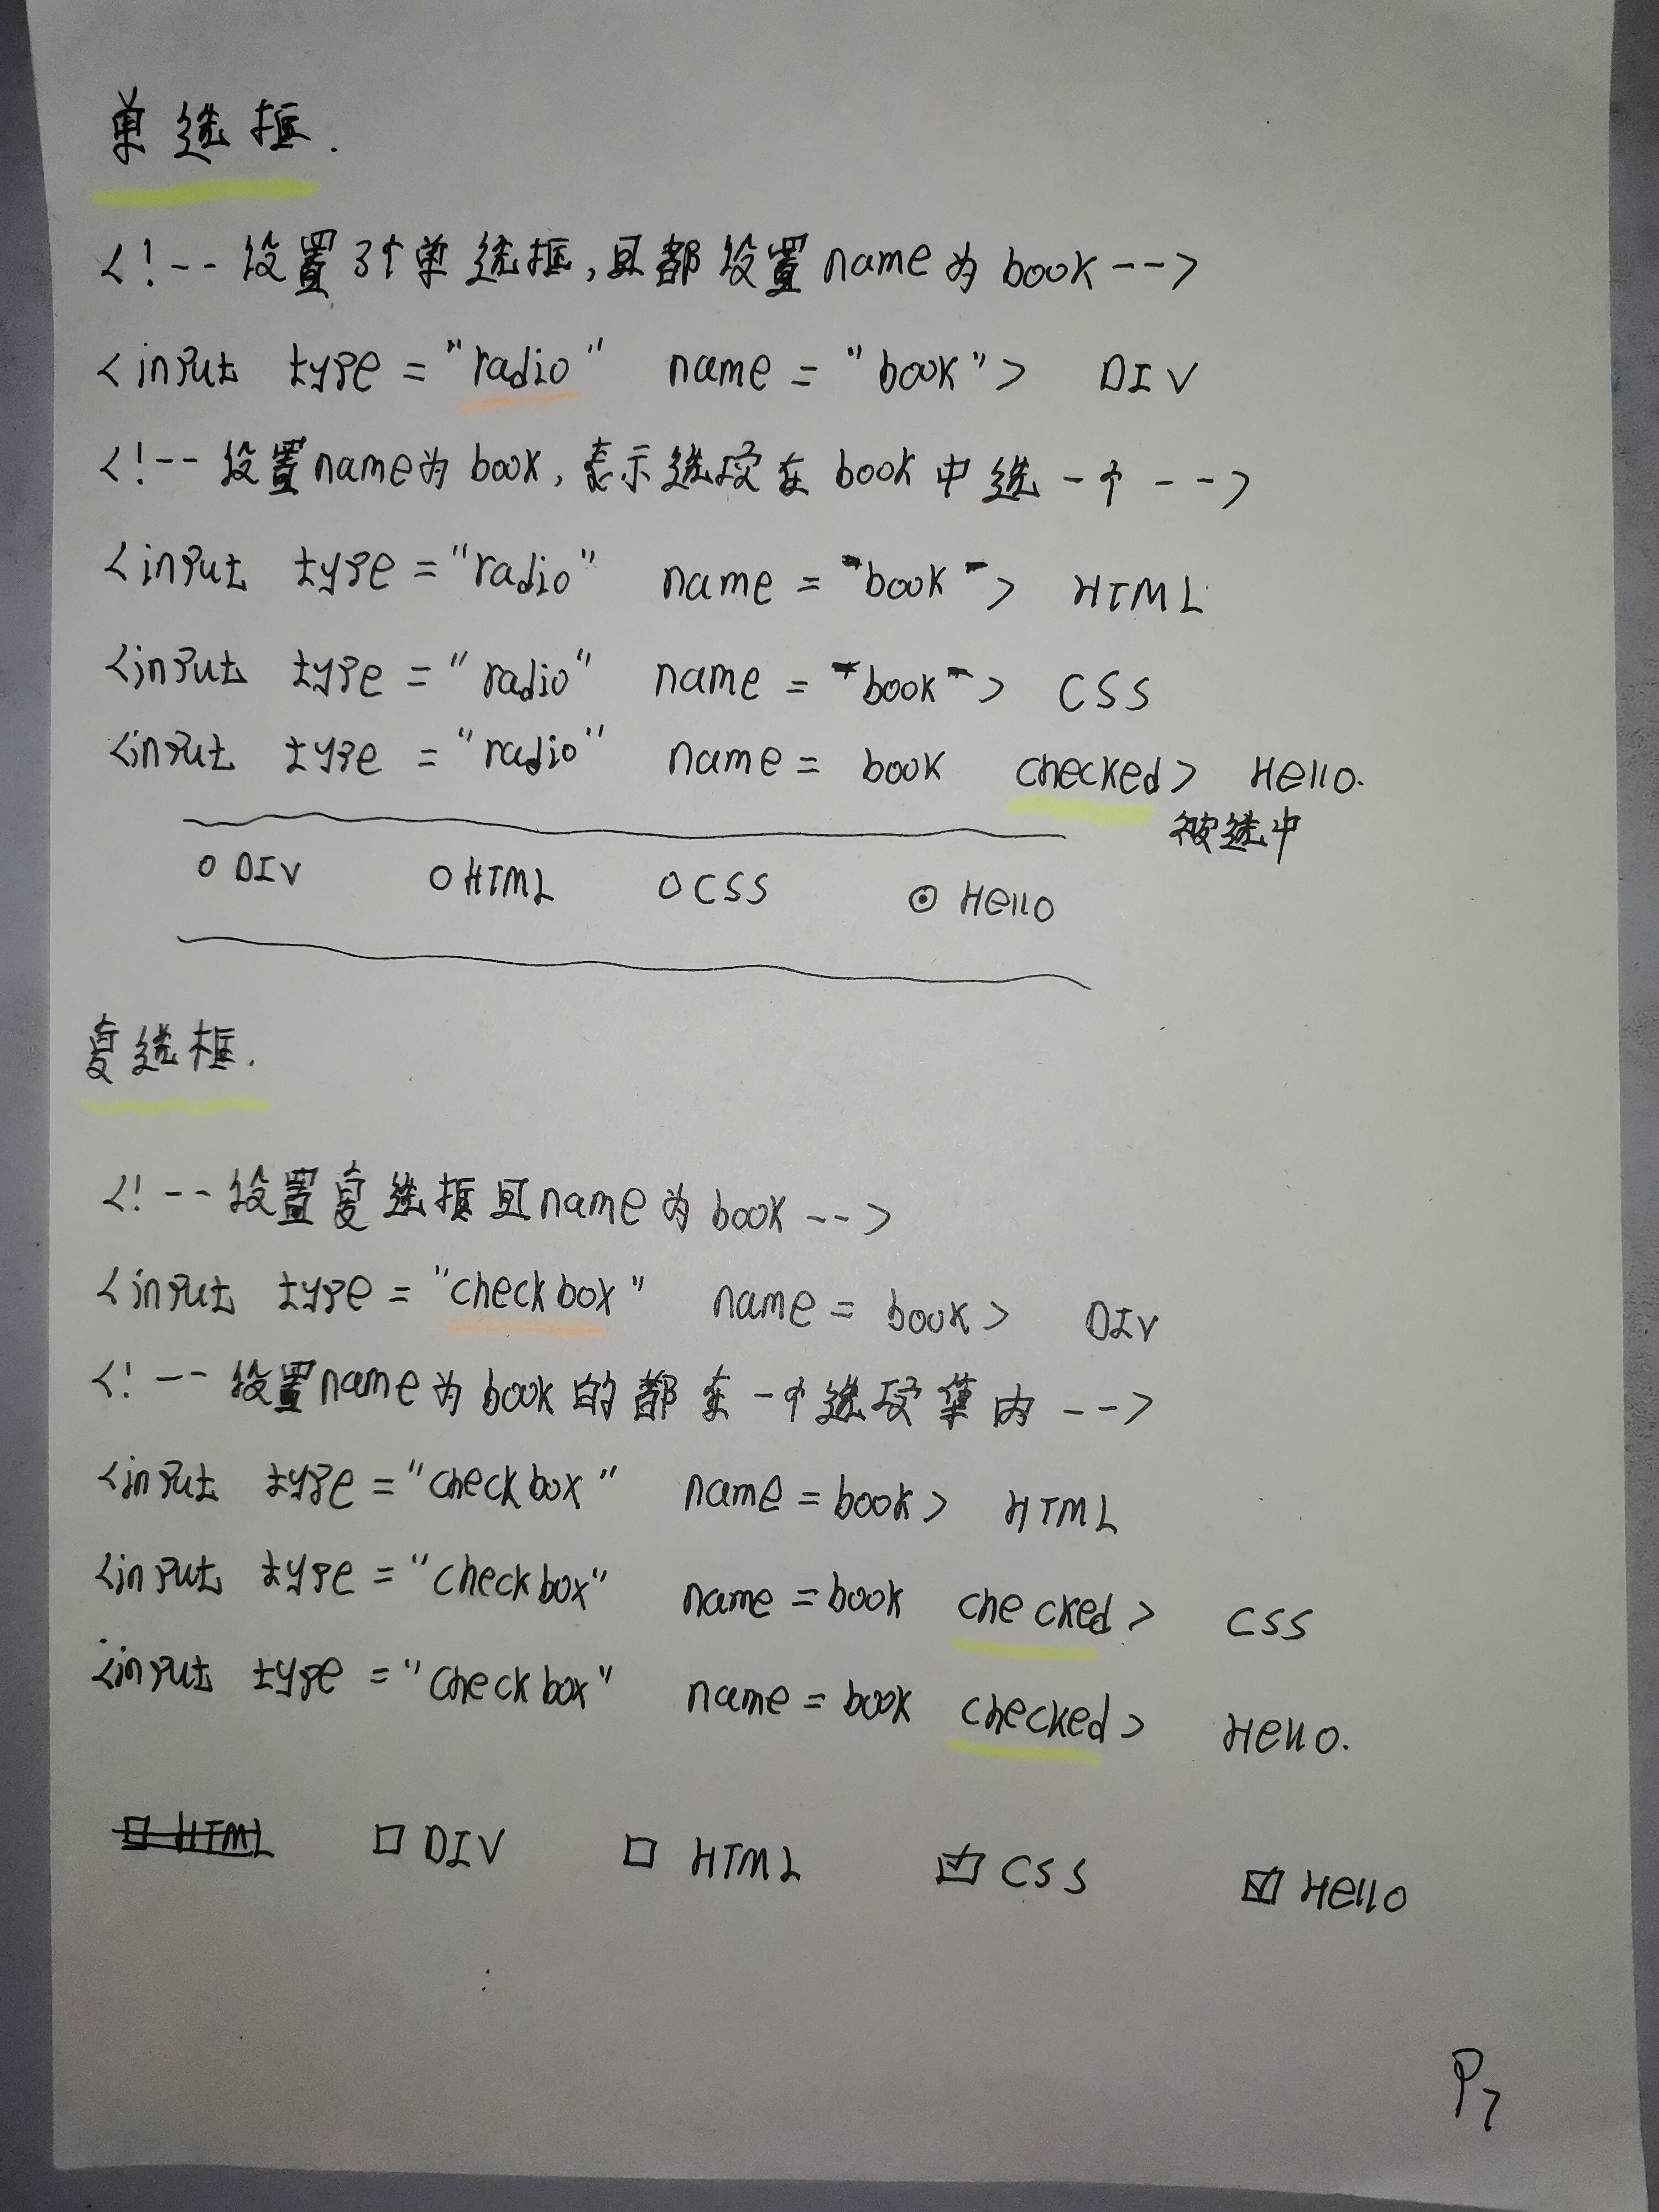 单选框.
<!-- 设置3个单选框,且都设置name为book-->
<input type="radio" name="book"> DIV
<!-- 设置name为book,表示选项在book中选一个 -->
<input type="radio" name="book"> HTML
<input type="radio" name="book"> CSS
<input type="radio" name= book checked> Hello.
被选中
○ DIV ○ HTML ○ CSS ⊙ Hello
复选框.
<!-- 设置复选框且name为book-->
<input type="checkbox" name= book> DIV
<!-- 设置name为book的都在一个选项集内 -->
<input type="checkbox" name=book> HTML
<input type="checkbox" name=book checked> CSS
<input type="checkbox" name=book checked> Hello.
□ HTML □ DIV □ HTML ☑ CSS ☑ Hello
P7